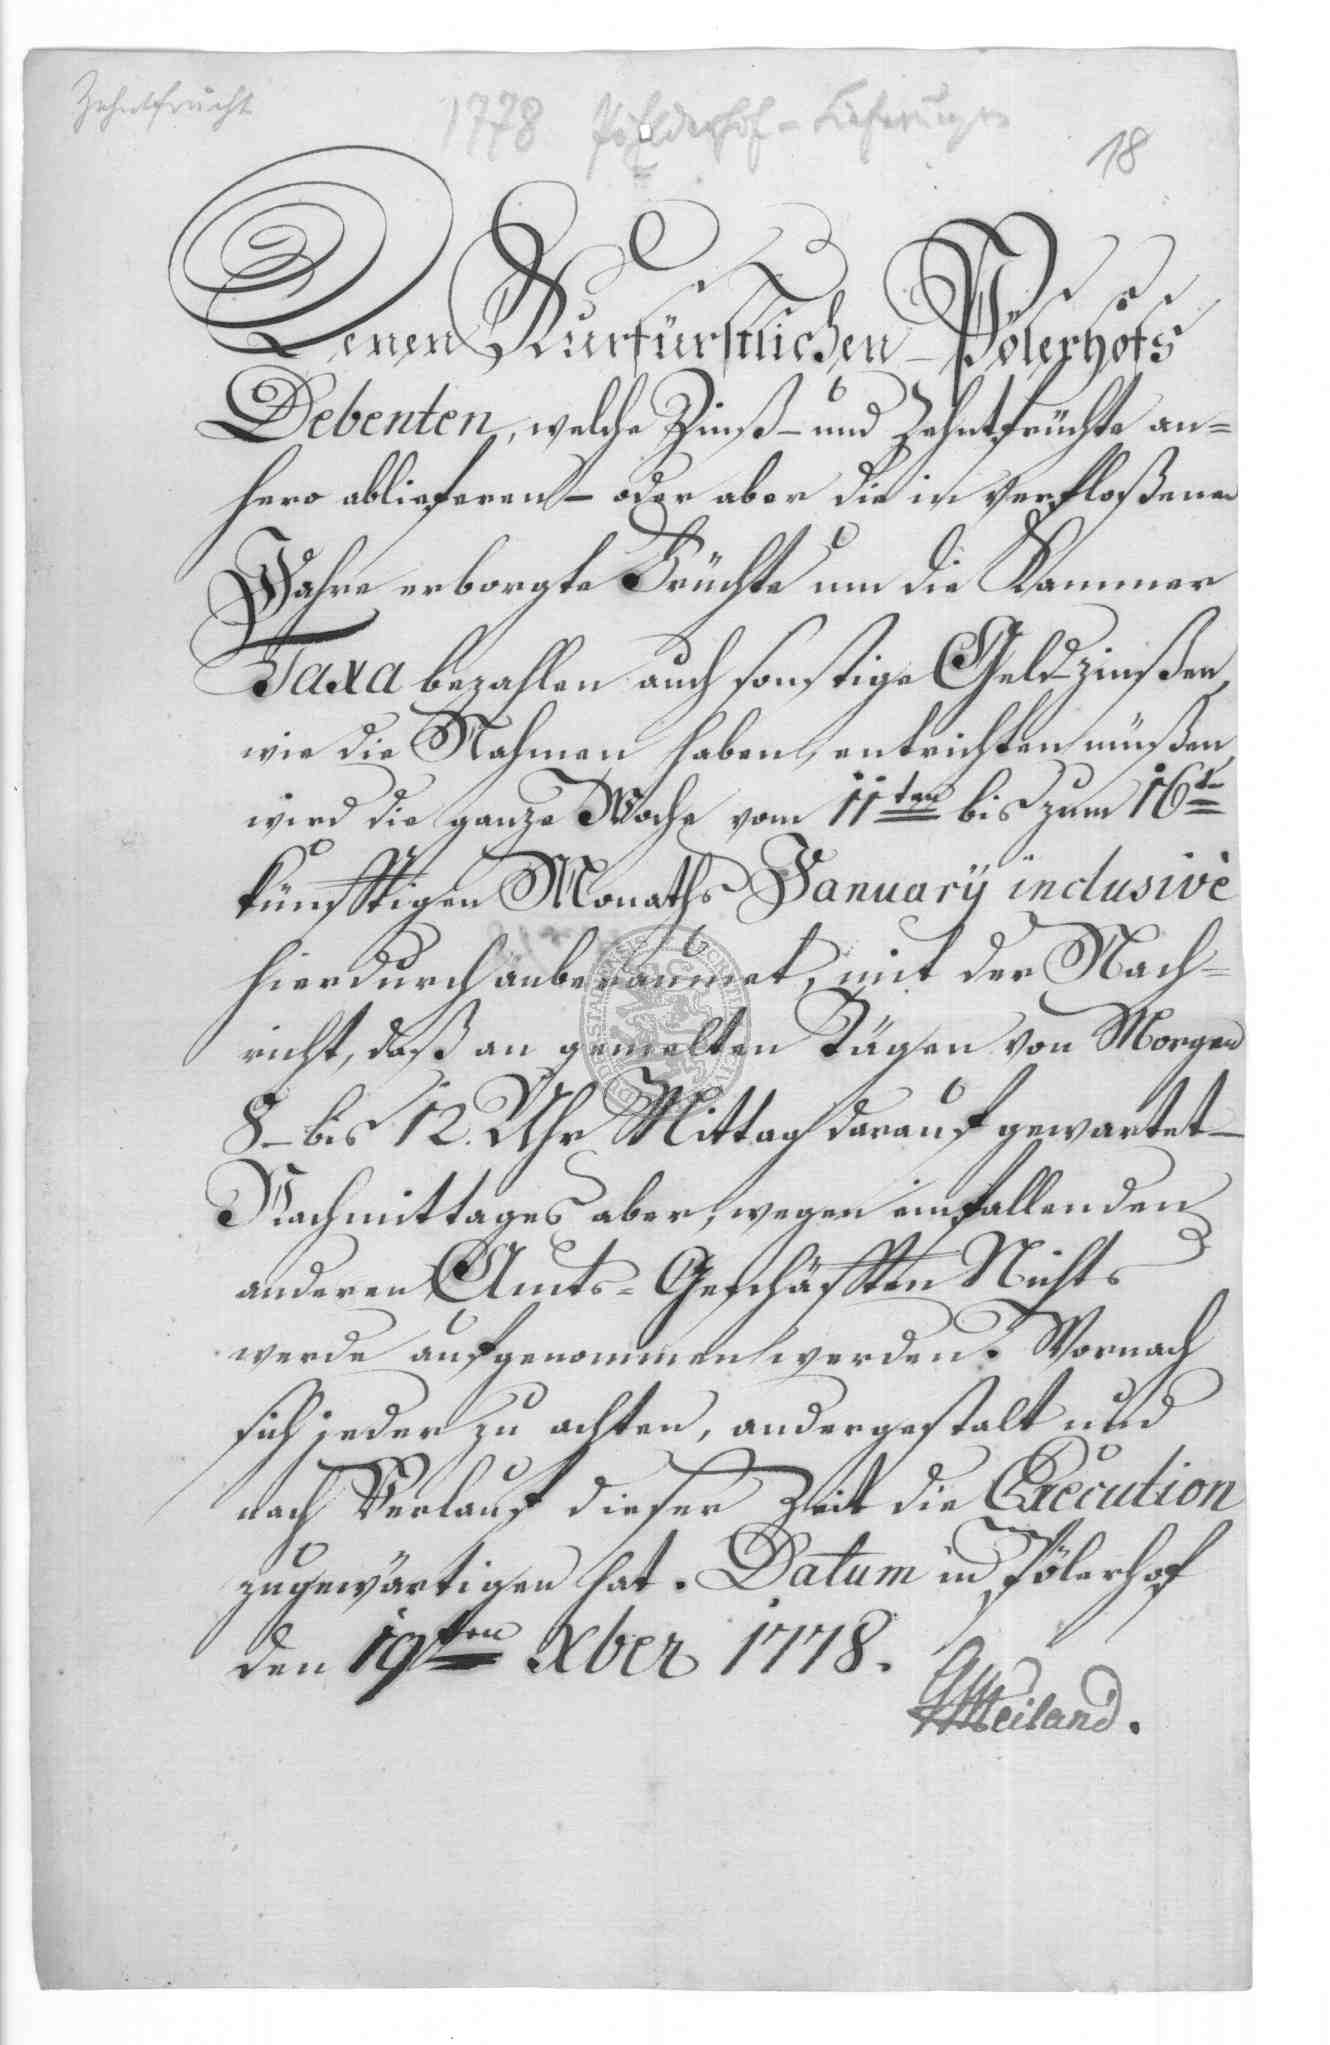 Zehntfrucht
1778 Pöhlderhof-Lieferungen
18
Denen Kurfürstlichen Pölerhofs
Debenten, welche Zinß- und Zehntfrüchte an=
hero ablieferen- oder aber die in verfloßenen
Jahre erborgte Früchte um die Kammer
Taxa bezahlen auch sonstige Geldzinßen,
wie die Nahmen haben, entrichten müßen,
wird die ganze Woche vom 11ten bis zum 16t
künfftigen Monaths January inclusivè
hierdurch anberaumet, mit der Nach=
richt, daß an gemelten Tägen von Morgen
8- bis 12. Uhr Mittag darauf gewartet-
Nachmittages aber, wegen einfallenden
anderen Amts=Geschäfften Nichts
werde aufgenommen werden. Wornach
sich jeder zu achten, andergestalt und
nach Verlauf dieser Zeit die Execution
zugewärtigen hat. Datum in Pölerhof
den 19ten Xber 1778.
Weiland.